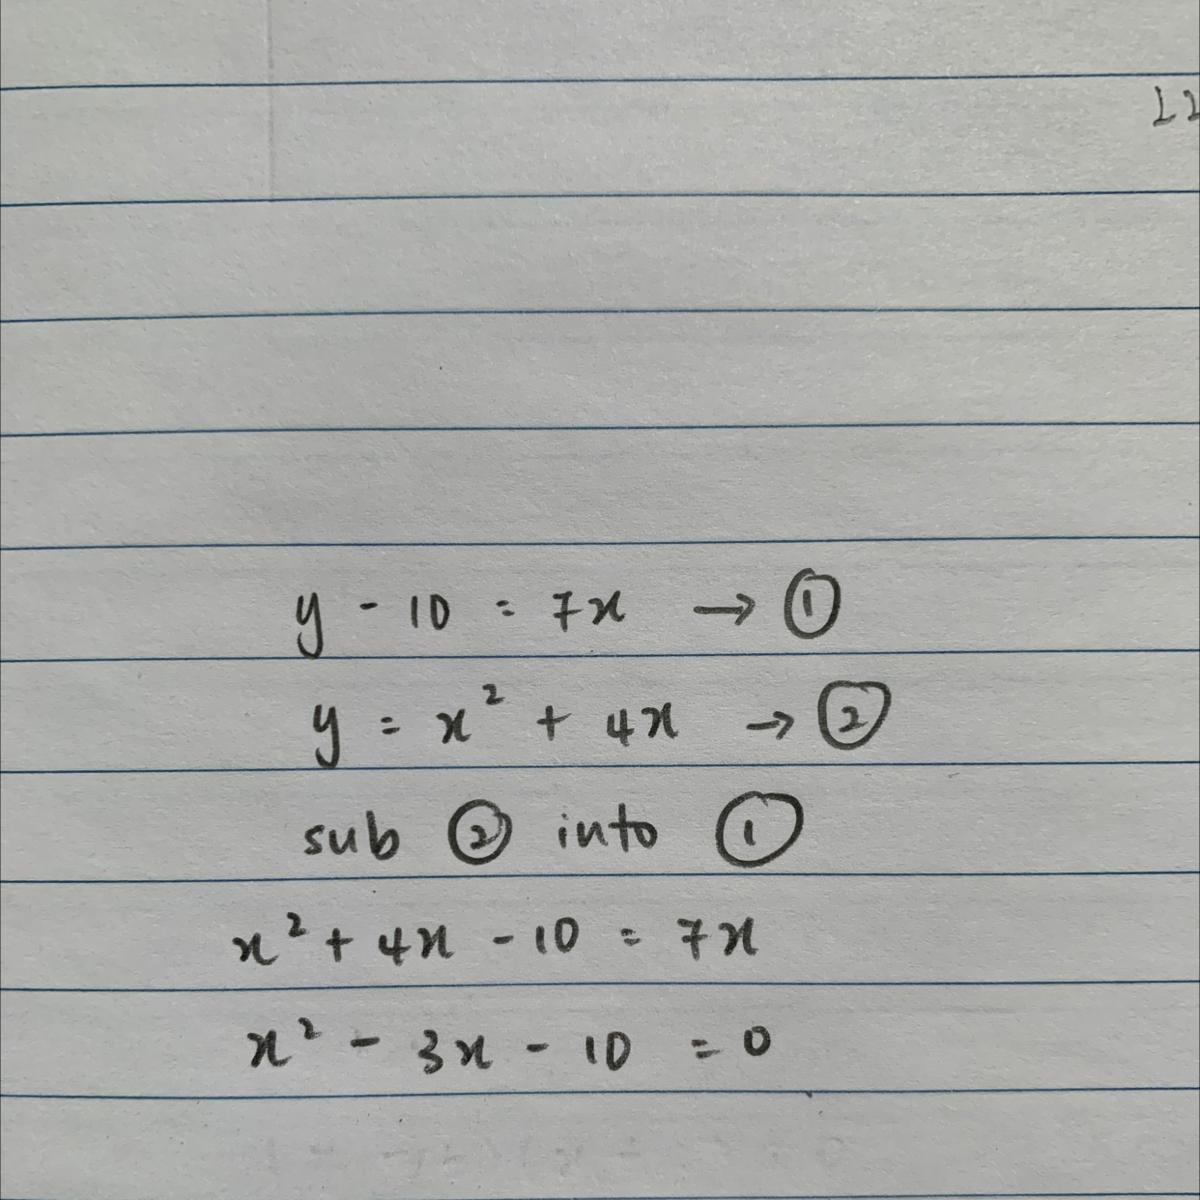 y - 10 = 7x → ①
y = x² + 4x → ②
sub ② into ①
x² + 4x - 10 = 7x
x² - 3x - 10 = 0